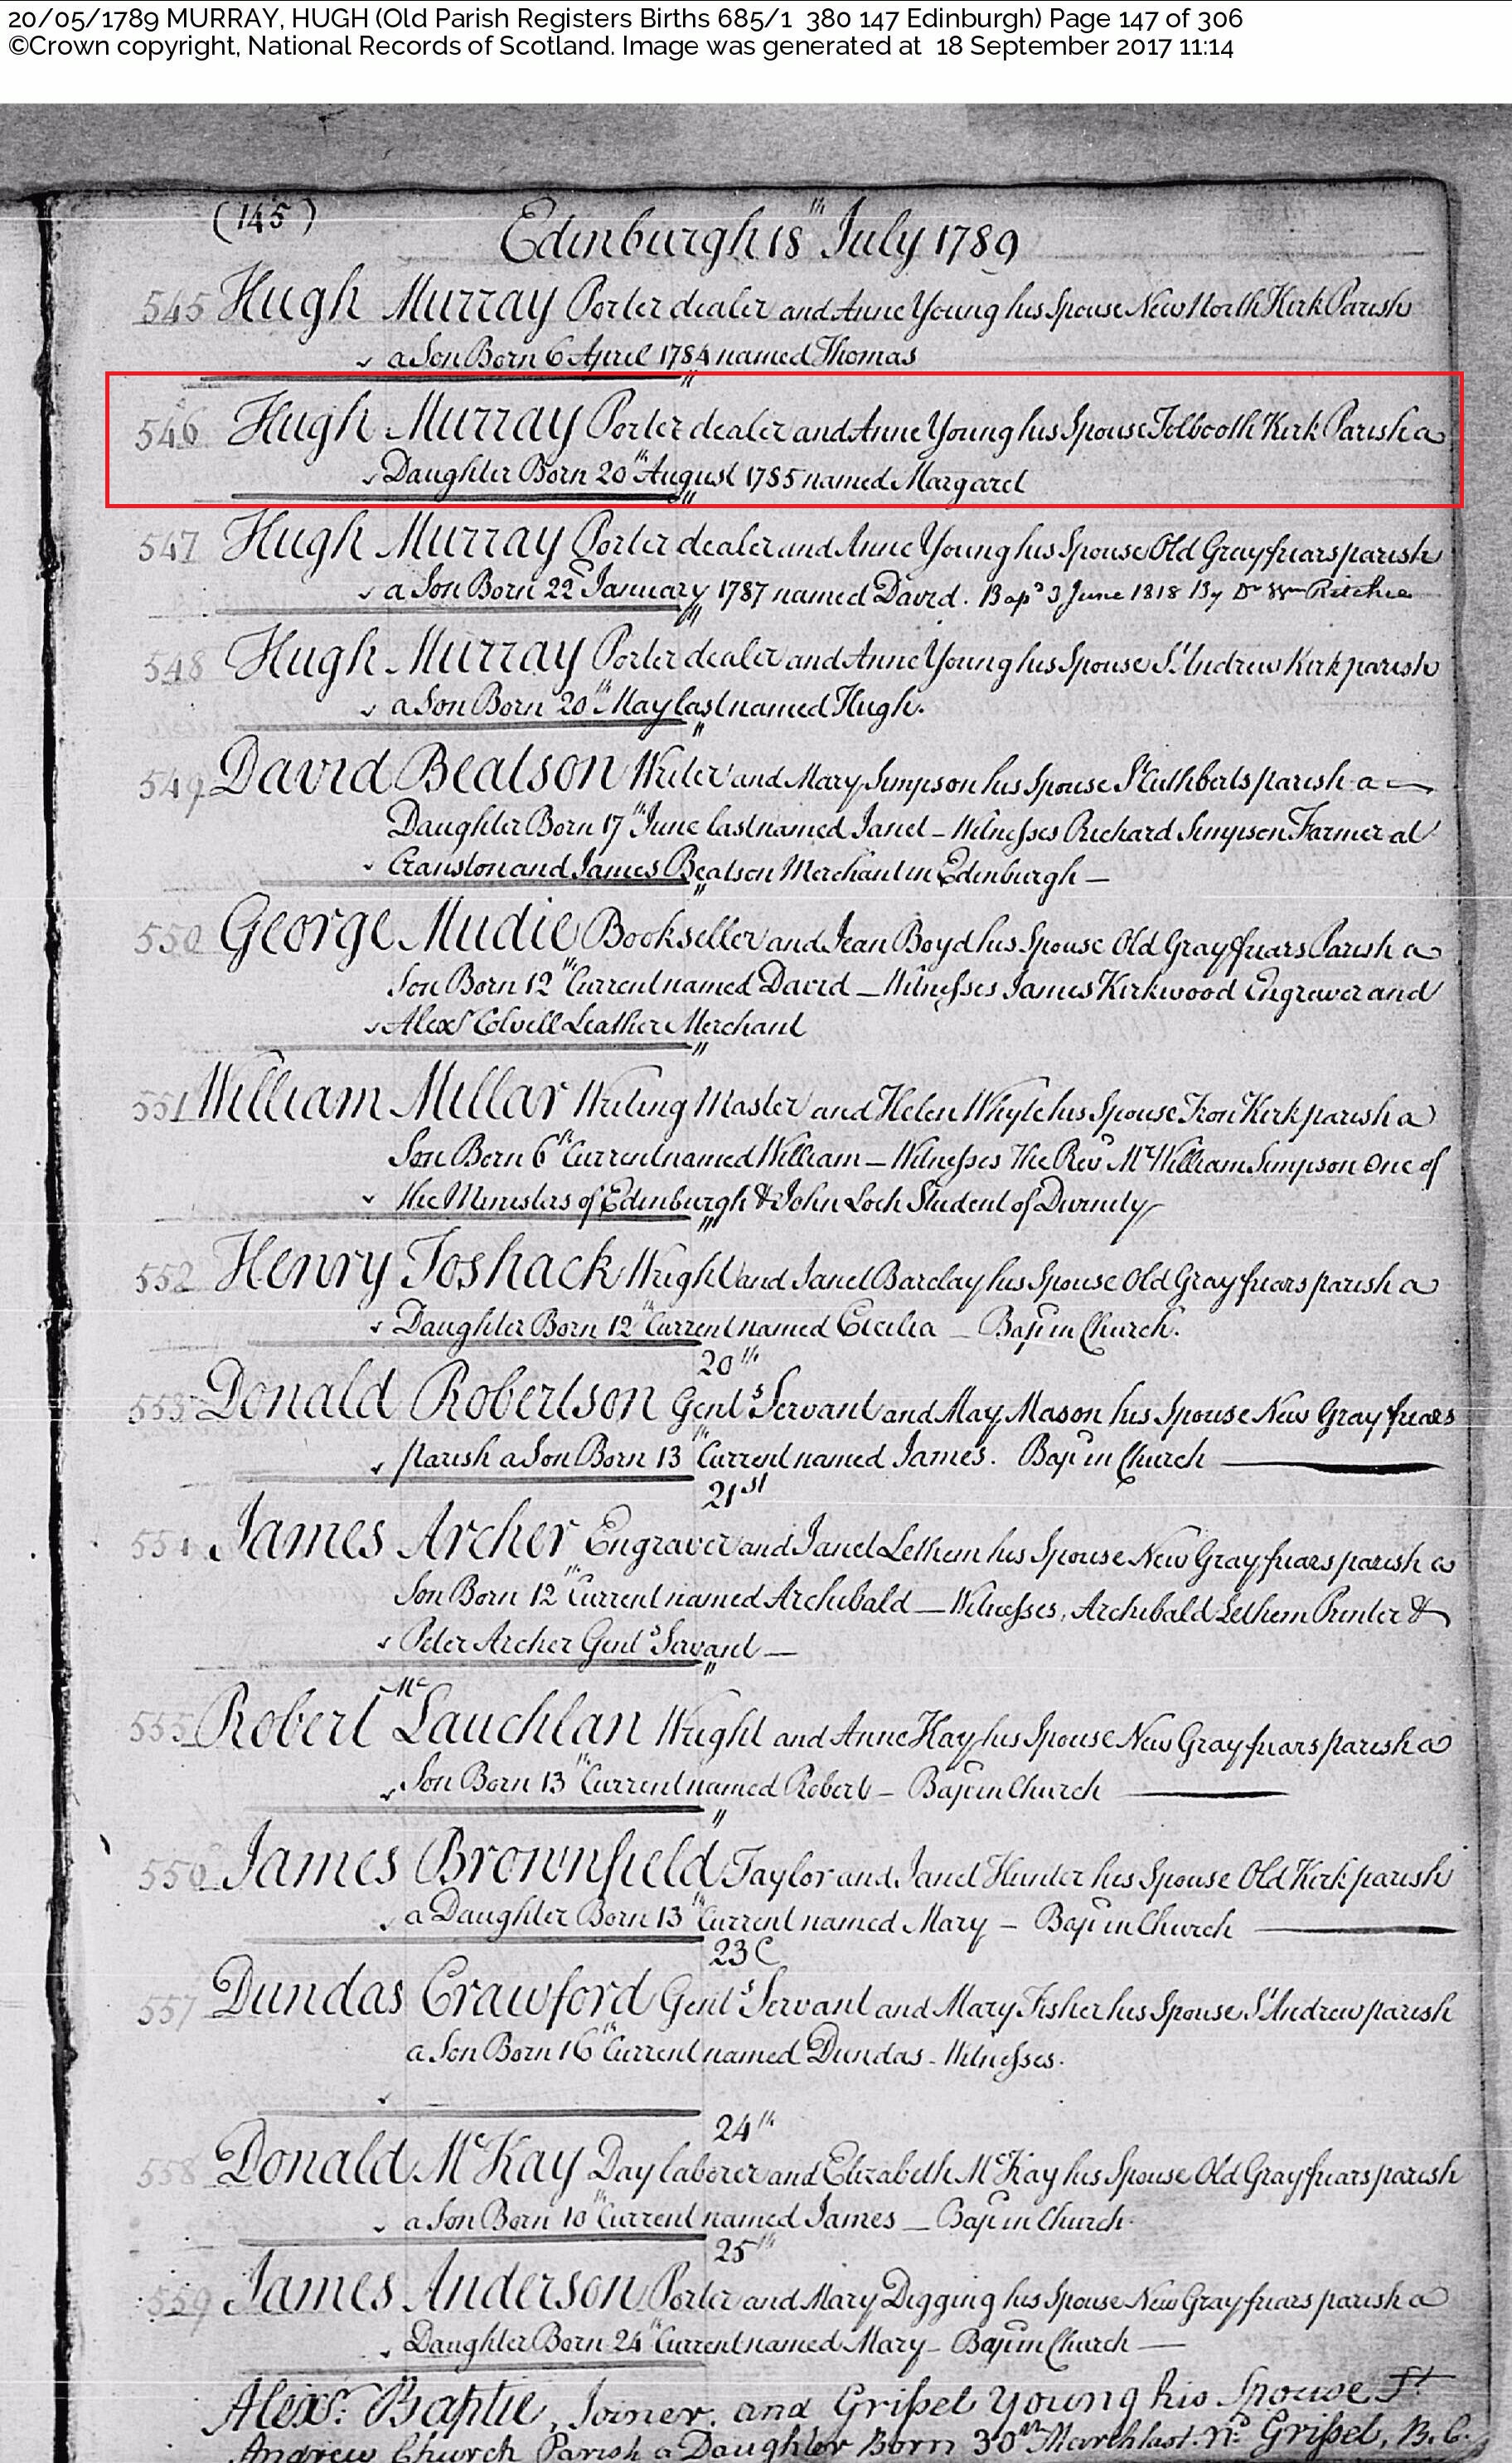 20/05/1789 MURRAY, HUGH (Old Parish Registers Births 685/1 380 147 Edinburgh) Page 147 of 306
©Crown copyright, National Records of Scotland. Image was generated at 18 September 2017 11:14
(145) Edinburgh 18th July 1789
545 Hugh Murray Porter dealer and Anne Young his Spouse New North Kirk Parish
a Son Born 6 April 1784 named Thomas
"
546 Hugh Murray Porter dealer and Anne Young his Spouse Tolbooth Kirk Parish a
Daughter Born 20th August 1785 named Margaret
"
547 Hugh Murray Porter dealer and Anne Young his Spouse Old Grayfriars parish
a Son Born 22d January 1787 named David. Bapd 3 June 1818 By Dr Wm Ritchie
"
548 Hugh Murray Porter dealer and Anne Young his Spouse St Andrew Kirk parish
a Son Born 20th May last named Hugh.
"
549 David Beatson Writer and Mary Simpson his Spouse St Cuthberts parish a —
Daughter Born 17th June last named Janet – Witnesses Richard Simpson Farmer at
Cranston and James Beatson Merchant in Edinburgh —
"
550 George Mudie Bookseller and Jean Boyd his Spouse Old Grayfriars Parish a
Son Born 12th Current named David – Witnesses James Kirkwood Engraver and
Alexr Colvell Leather Merchant
"
551 William Millar Writing Master and Helen Whyte his Spouse Tron Kirk parish a
Son Born 6th Current named William – Witnesses The Revd Mr William Simpson One of
the Ministers of Edinburgh & John Loch Student of Divinity
"
552 Henry Toshack Wright and Janet Barclay his Spouse Old Grayfriars parish a
Daughter Born 12th Current named Cecilia – Bap: in Church.
20th
553 Donald Robertson Gents Servant and May Mason his Spouse New Grayfriars
parish a Son Born 13th Current named James. Bap: in Church
21st
554 James Archer Engraver and Janet Lethem his Spouse New Grayfriars parish a
Son Born 12th Current named Archibald – Witnesses, Archibald Lethem Printer &
Peter Archer Gents Servant —
"
555 Robert McLauchlan Wright and Anne Hay his Spouse New Grayfriars parish a
Son Born 13th Current named Robert – Bap: in Church
"
556 James Brownfield Taylor and Janet Hunter his Spouse Old Kirk parish
a Daughter Born 13th Current named Mary – Bap: in Church
23d
557 Dundas Crawford Gents Servant and Mary Fisher his Spouse St Andrew parish
a Son Born 16th Current named Dundas – Witnesses.
24th
558 Donald McKay Day laborer and Elizabeth McKay his Spouse Old Grayfriars parish
a Son Born 10th Current named James – Bap: in Church
25th
559 James Anderson Porter and Mary Digging his Spouse New Grayfriars parish a
Daughter Born 24th Current named Mary – Bap: in Church —
Alexr: Baptie, Joiner, and Grissel Young his Spouse St
Andrew Church Parish a Daughter Born 30th March last. nd Grissel, B. C.